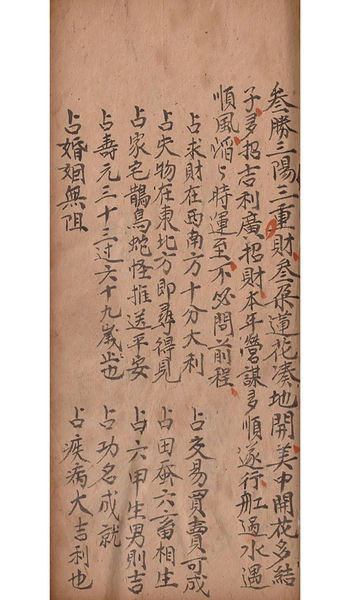 叁勝三陽三重財叁朵蓮花湊地開美中開花多結
子多招吉利廣招財本年營謀多順遂行舡過水遇
順風滔〻時運至不必問前程
占求財在西南方十分大利
占交易買賣可成
占失物在東北方即尋得見
占田蚕六畜相生
占家宅鵲鳥蛇怪推送平安
占六甲生男則吉
占壽元三十三过六十九嵗止也
占功名成就
占婚姻無阻
占疾病大吉利也